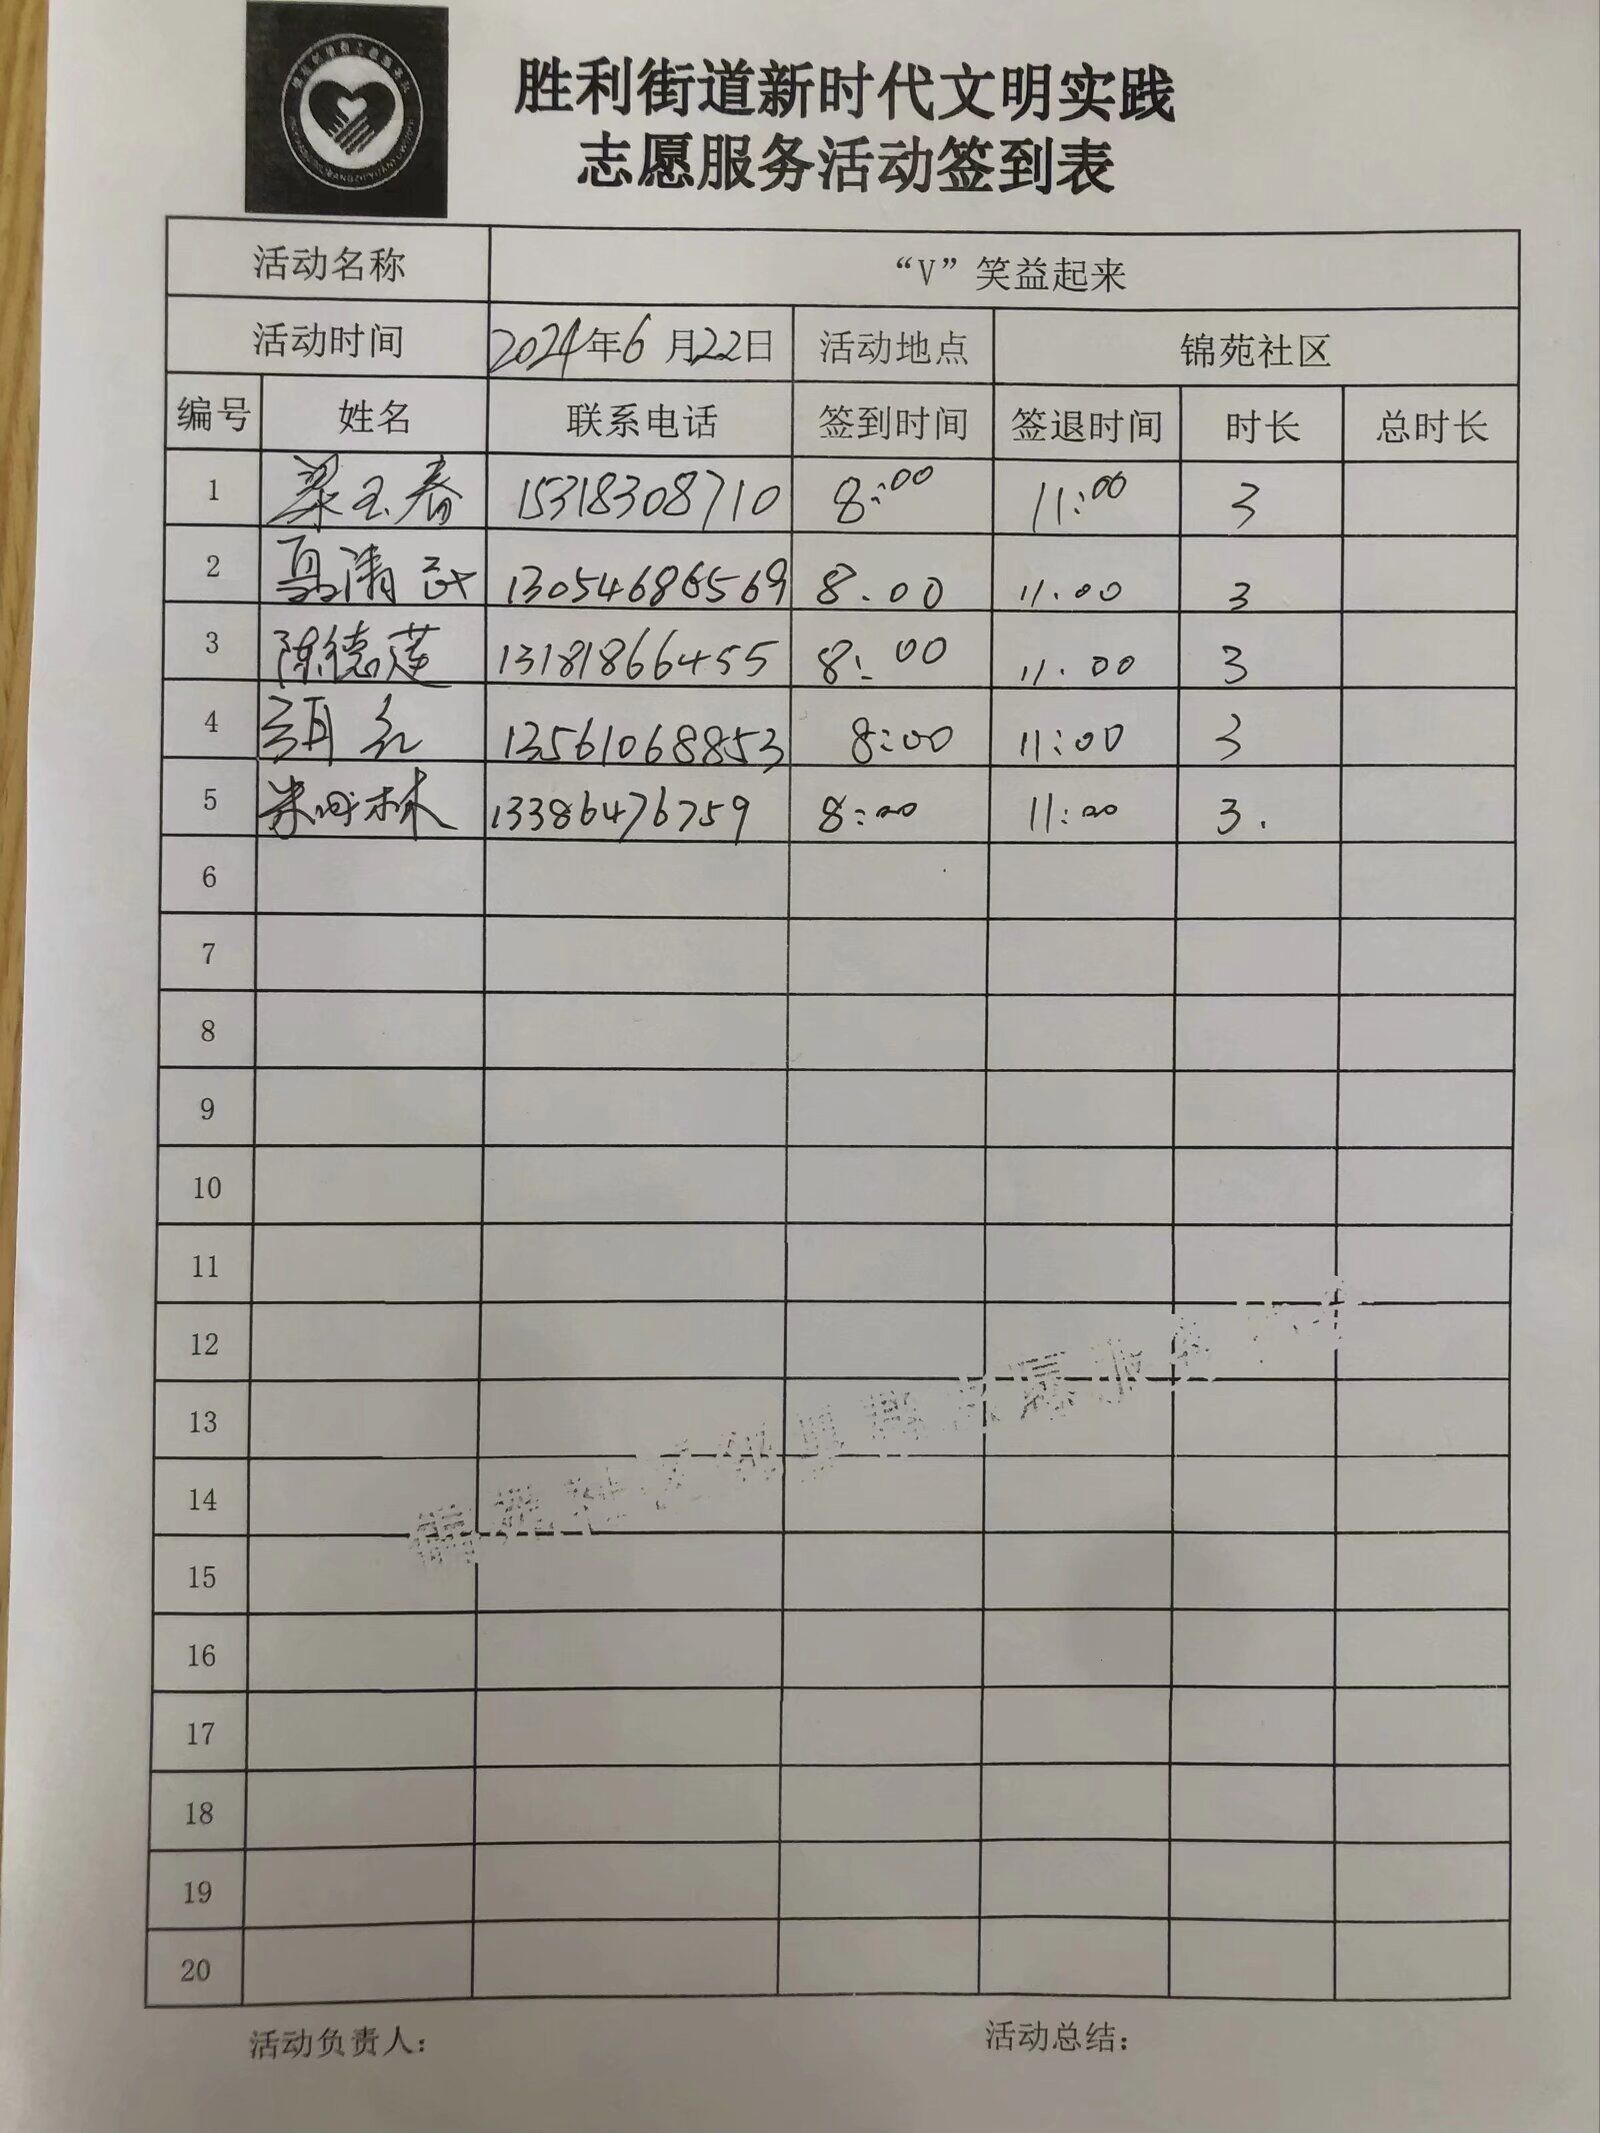 胜利街道新时代文明实践
志愿服务活动签到表
活动名称 “V”笑益起来
活动时间 2024年6月22日 活动地点 锦苑社区
编号 姓名 联系电话 签到时间 签退时间 时长 总时长
1 梁玉春 15318308710 8:00 11:00 3
2 聂清正 13054686569 8.00 11.00 3
3 陈德莲 13181866455 8:00 11.00 3
4 红 13561068853 8:00 11:00 3
5 林 13386476759 8:00 11:00 3.
6
7
8
9
10
11
12
13
14
15
16
17
18
19
20
活动负责人: 活动总结: